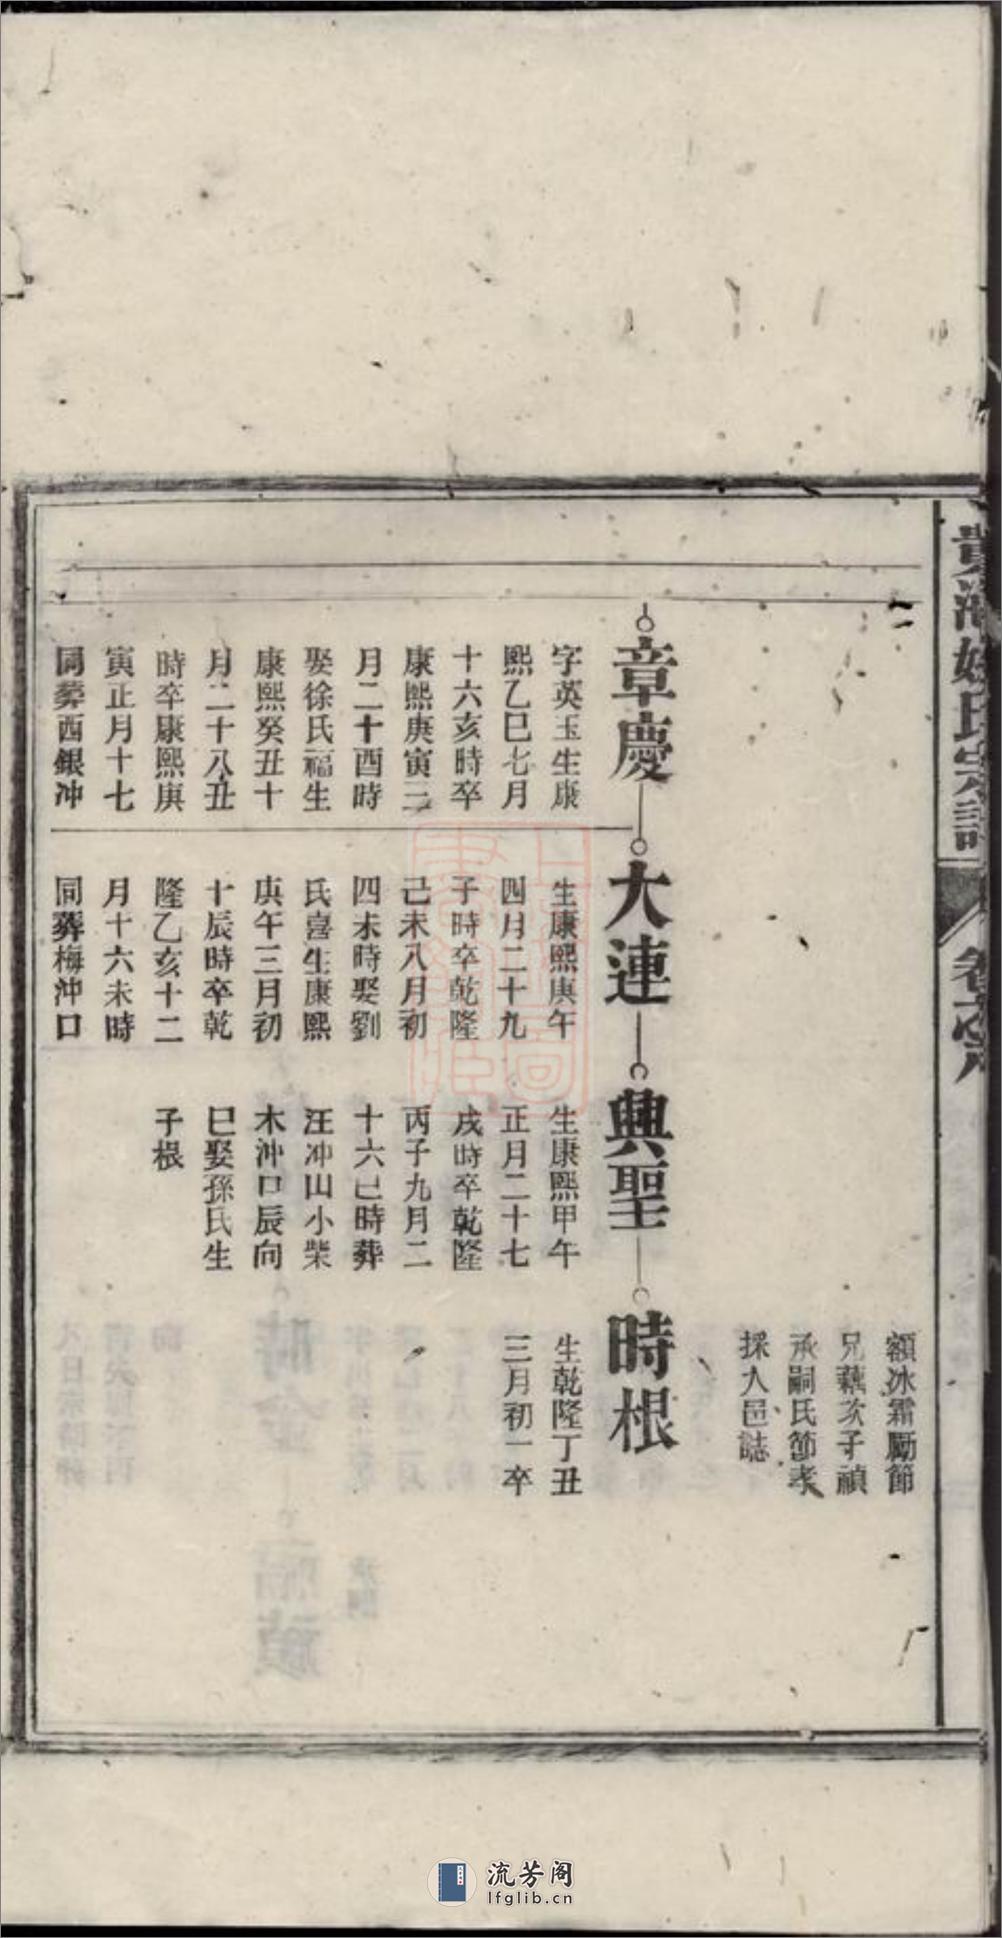 額冰霜勵節
兄藕次子禎
承嗣氏節孝
採入邑誌
章慶
字英玉生康
熙乙巳七月
十六亥時卒
康熙庚寅三
月二十酉時
娶徐氏福生
康熙癸丑十
月二十八丑
時卒康熙庚
寅正月十七
同葬西銀冲
大連
生康熙庚午
四月二十九
子時卒乾隆
己未八月初
四未時娶劉
氏喜生康熙
庚午三月初
十辰時卒乾
隆乙亥十二
月十六未時
同葬梅沖口
興聖
生康熙甲午
正月二十七
戌時卒乾隆
丙子九月二
十六已時葬
汪冲山小柴
木沖口辰向
巳娶孫氏生
子根
時根
生乾隆丁丑
三月初一卒
氏宗譜
流芳阁
lfglib.cn